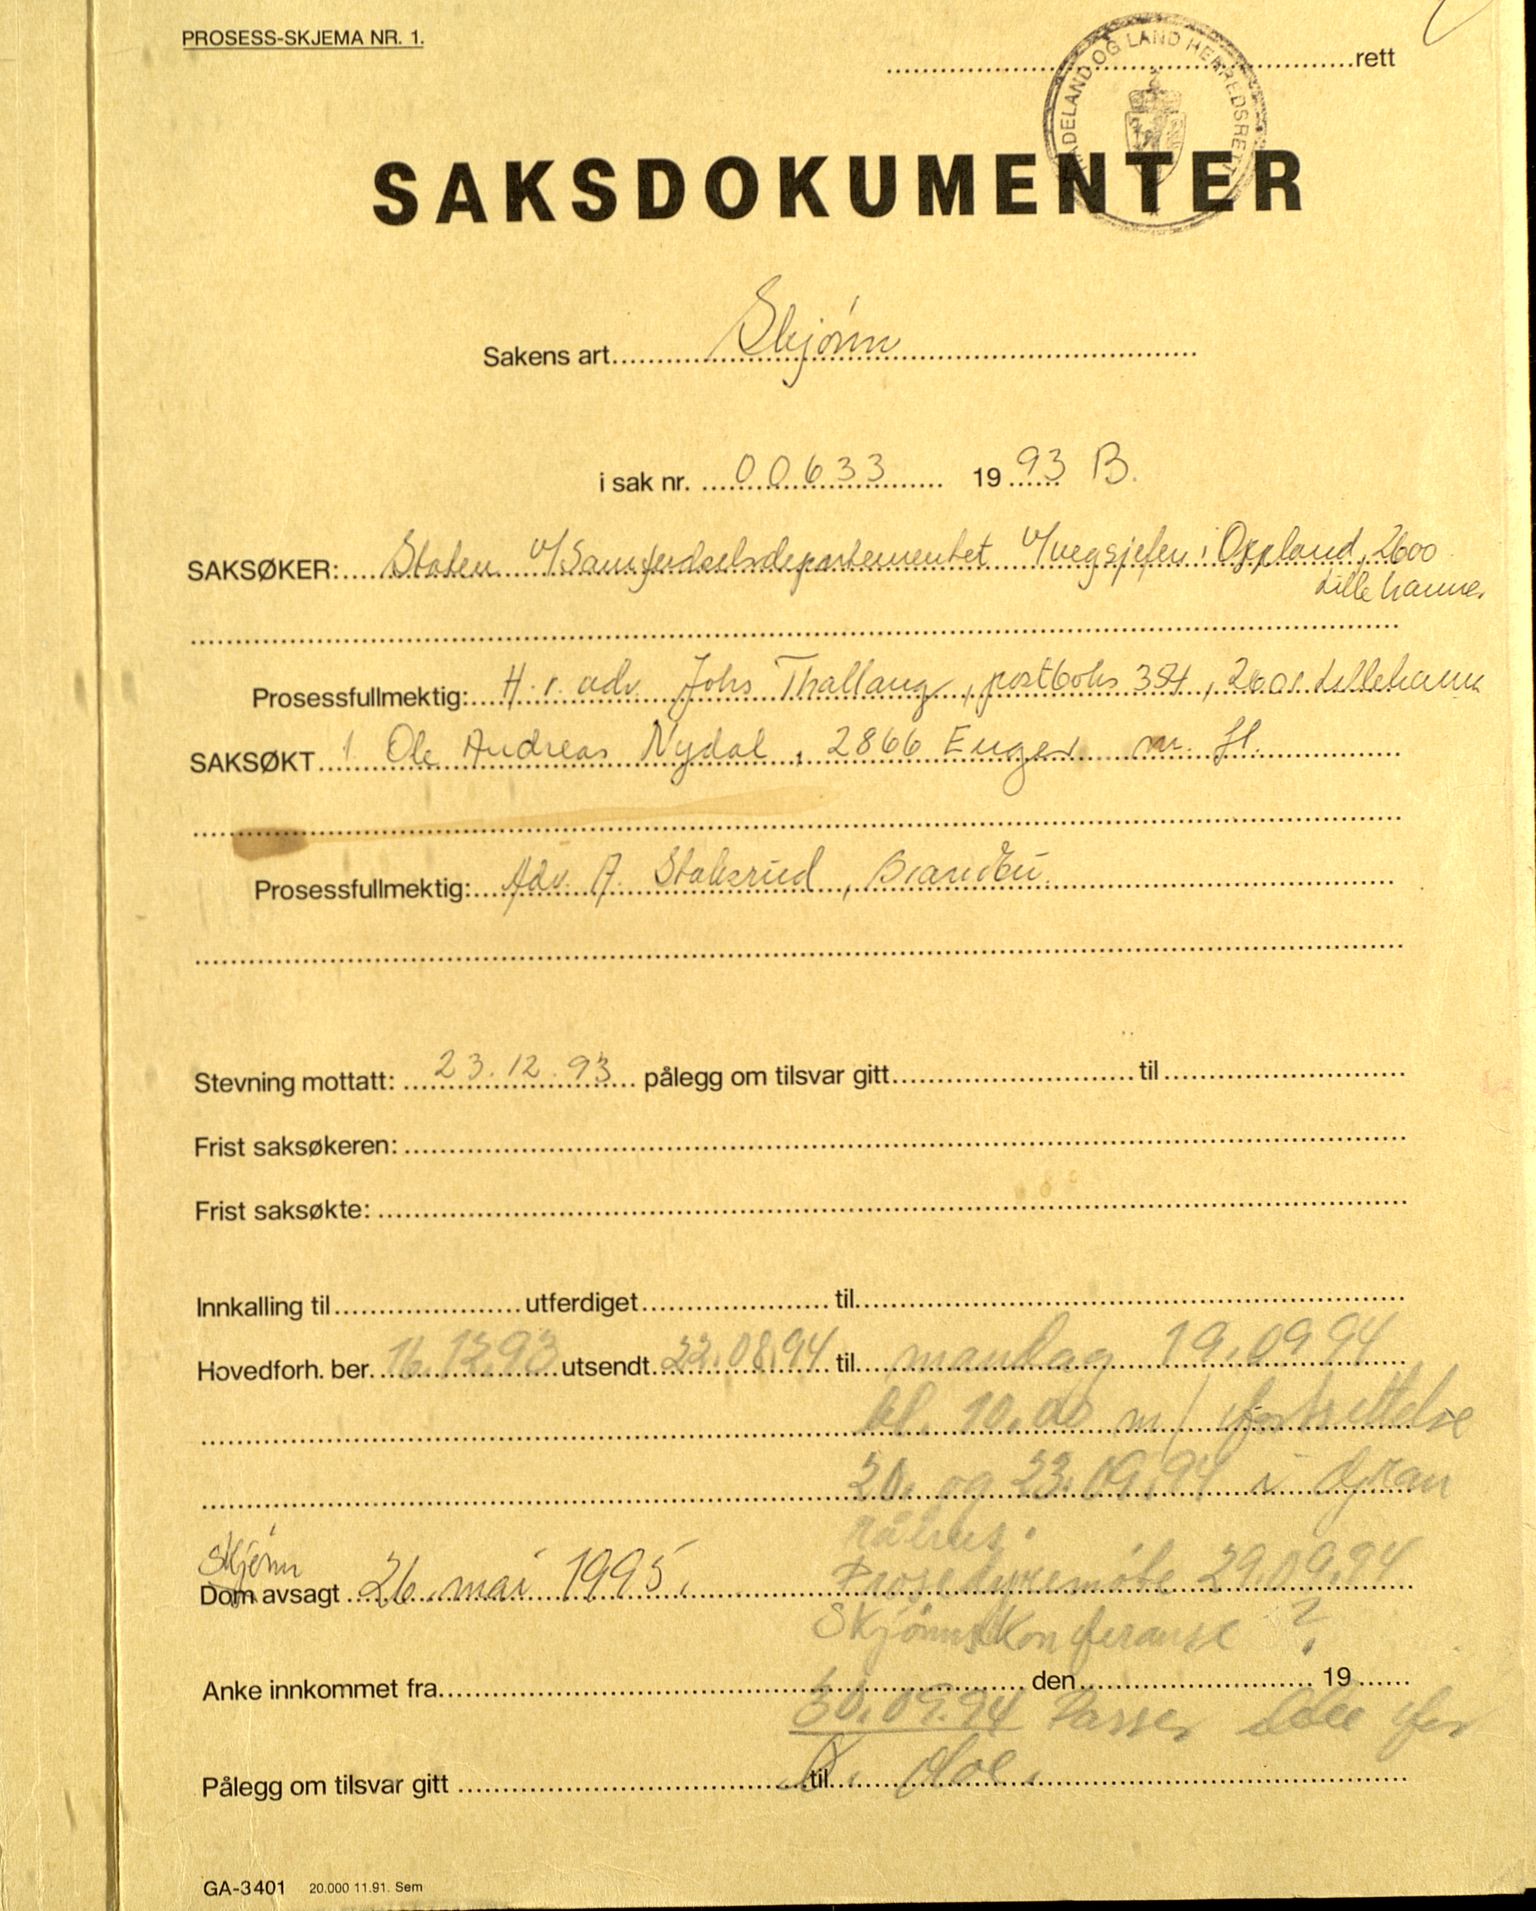 PROSESS-SKJEMA NR. 1.
HADELAND OG LAND HERREDSRETT
..........rett
SAKSDOKUMENTER
Sakens art..........Skjønn..........
i sak nr. ..00633.. 19 93 B.
SAKSØKER:....Staten v/Samferdselsdepartementet v/vegsjefen i Oppland, 2600
Lillehammer
Prosessfullmektig:...H.r.adv. Johs Thallaug, postboks 384, 2601 Lillehammer
SAKSØKT...1. Ole Andreas Nydal, 2866 Enger m. fl.
Prosessfullmektig:...Adv. A. Staksrud, Brandbu
Stevning mottatt: ..23.12.93.. pålegg om tilsvar gitt..........til..........
Frist saksøkeren: ..........
Frist saksøkte: ..........
Innkalling til..........utferdiget..........til..........
Hovedforh. ber. 16.12.93 utsendt. 22.08.94 til....mandag 19.09.94
kl. 10.00 m/fortsettelse
20. og 23.09.94 i Gran
rådhus.
Skjønn
Dom avsagt ..26. mai 1995.
Prosedyremøte 29.09.94
Skjønnskonferanse ?
Anke innkommet fra..........den..........19......
30.09.94 Passer ikke for
Pålegg om tilsvar gitt ..........til..........
GA-3401 20.000 11.91. Sem